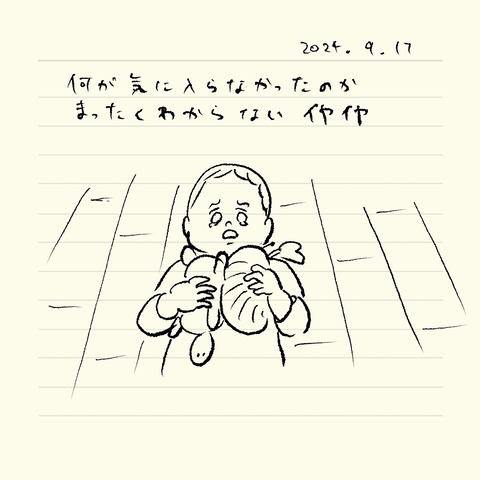 2024.9.17
何が気に入らなかったのか
まったくわからない イヤイヤ